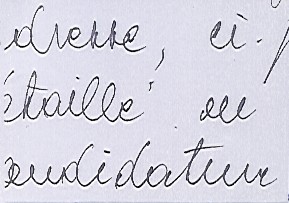 dresse, ci-j
étaillé au
andidature